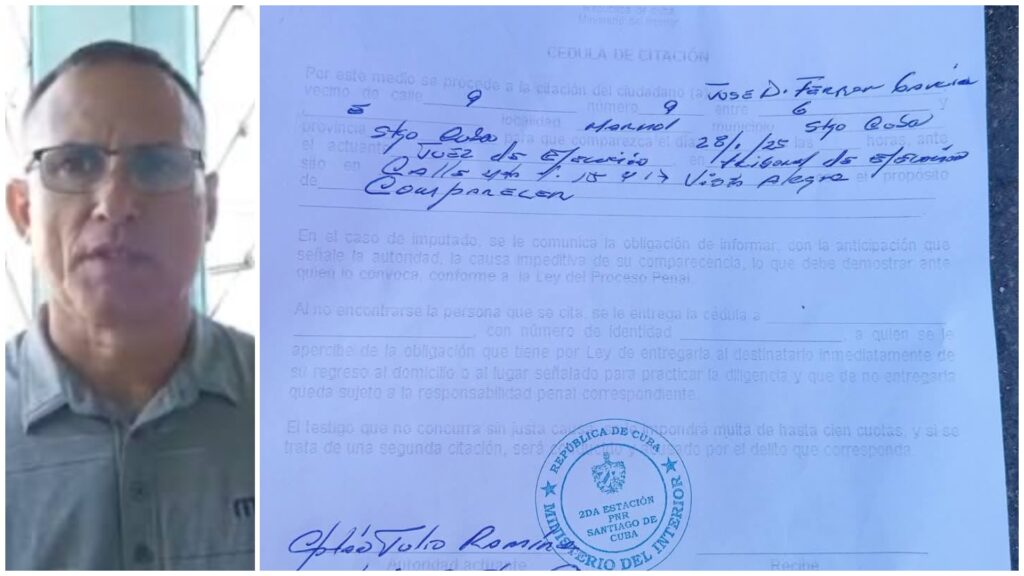 República de Cuba
Ministerio del Interior
CEDULA DE CITACIÓN
Por este medio se procede a la citación del ciudadano (a) Jose D. Ferrer Garcia
vecino de calle 9 número 9 entre 6 y
5 localidad municipio Stgo Cuba
provincia Stgo Cuba para que comparezca el día 28/1/25 a las horas, ante
el actuante Juez de Ejecución en Tribunal de Ejecución
sito en Calle 15 y 17 Vista Alegre el propósito
de Comparecer
En el caso de imputado, se le comunica la obligación de informar, con la anticipación que
señale la autoridad, la causa impeditiva de su comparecencia, lo que debe demostrar ante
quien lo convoca, conforme a la Ley del Proceso Penal.
Al no encontrarse la persona que se cita, se le entrega la cédula a
, con número de identidad , a quien se le
apercibe de la obligación que tiene por Ley de entregarla al destinatario inmediatamente de
su regreso al domicilio o al lugar señalado para practicar la diligencia y que de no entregarla
queda sujeto a la responsabilidad penal correspondiente.
El testigo que no concurra sin justa causa se impondrá multa de hasta cien cuotas, y si se
trata de una segunda citación, será y acusado por el delito que corresponda.
REPÚBLICA DE CUBA
2DA ESTACIÓN
PNR
SANTIAGO DE
CUBA
MINISTERIO DEL INTERIOR
Julio Ramín
Autoridad actuante Recibe